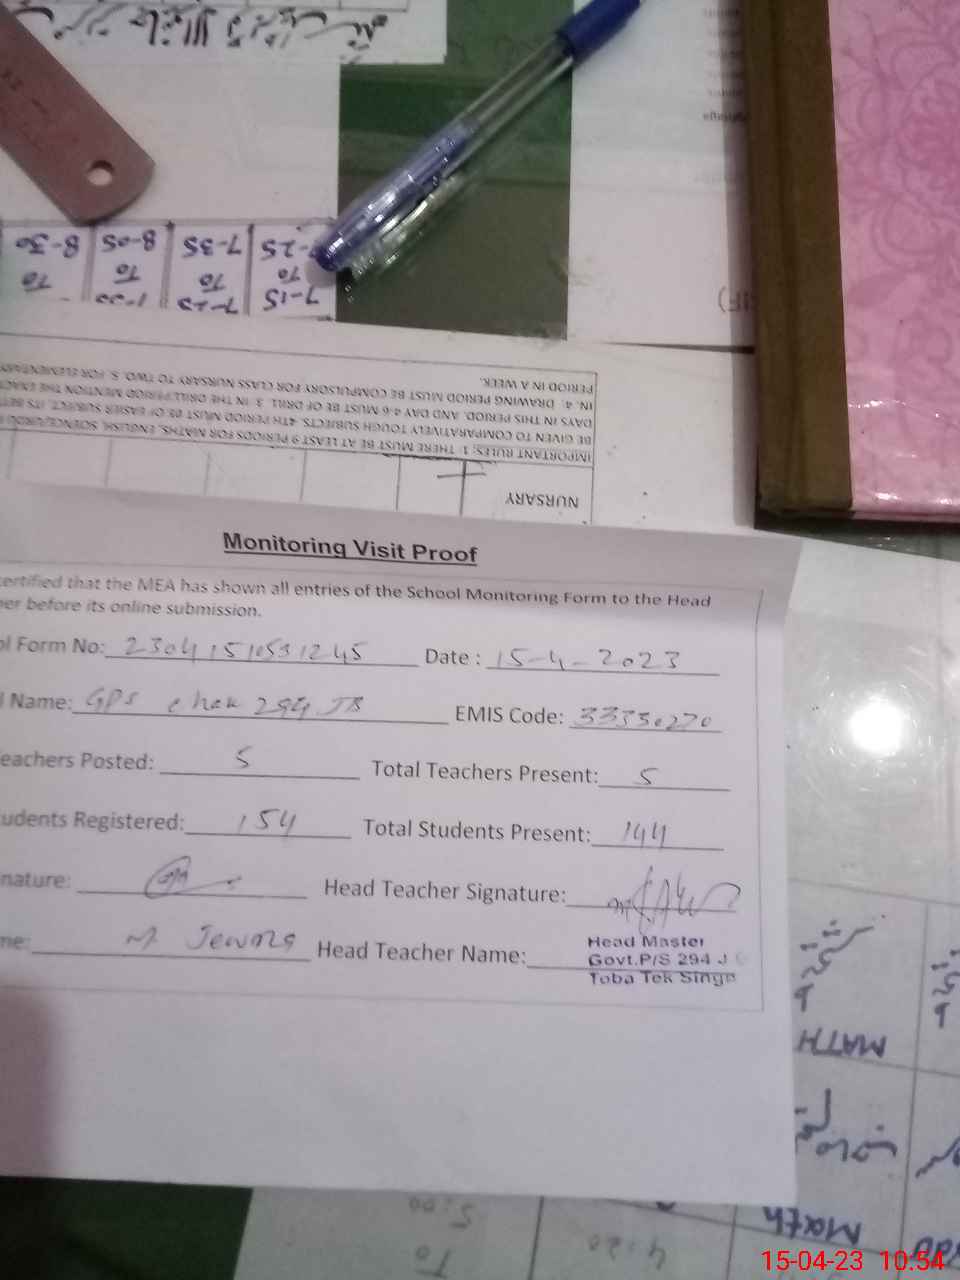 Monitoring Visit Proof
ertified that the MEA has shown all entries of the School Monitoring Form to the Head
er before its online submission.
ol Form No: 23041510531245 Date : 15-4-2023
l Name: GPS chak 294 JB EMIS Code: 33330270
eachers Posted: 5 Total Teachers Present: 5
udents Registered: 154 Total Students Present: 144
nature: Head Teacher Signature:
me: M Head Teacher Name:
Head Master
Govt.P/S 294 J
Toba Tek Singh
NURSARY
IMPORTANT RULES; 1: THERE MUST BE AT LEAST 9 PERIODS FOR MATHS, ENGLISH, SCIENCE/URDU
BE GIVEN TO COMPARATIVELY TOUGH SUBJECTS. 4TH PERIOD MUST BE OF EASIER SUBJECT. ITS BETT
DAYS IN THIS PERIOD. AND DAY 4-6 MUST BE OF DRILL. 3. IN THE DRILL PERIOD MENTION THE EXAC
IN. 4. DRAWING PERIOD MUST BE COMPULSORY FOR CLASS NURSARY TO TWO. 5. FOR ELEMENTARY
PERIOD IN A WEEK.
7-15
To To To To
7-25 7-35 8-05 8-30
MATH
Math
To
5:00
4:20
15-04-23 10:54